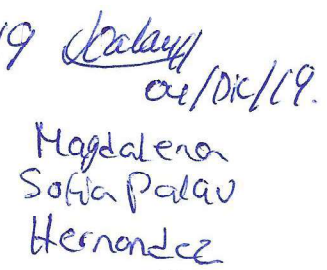 19
04/Dic/19.
Magdalena
Sofia Palau
Hernandez